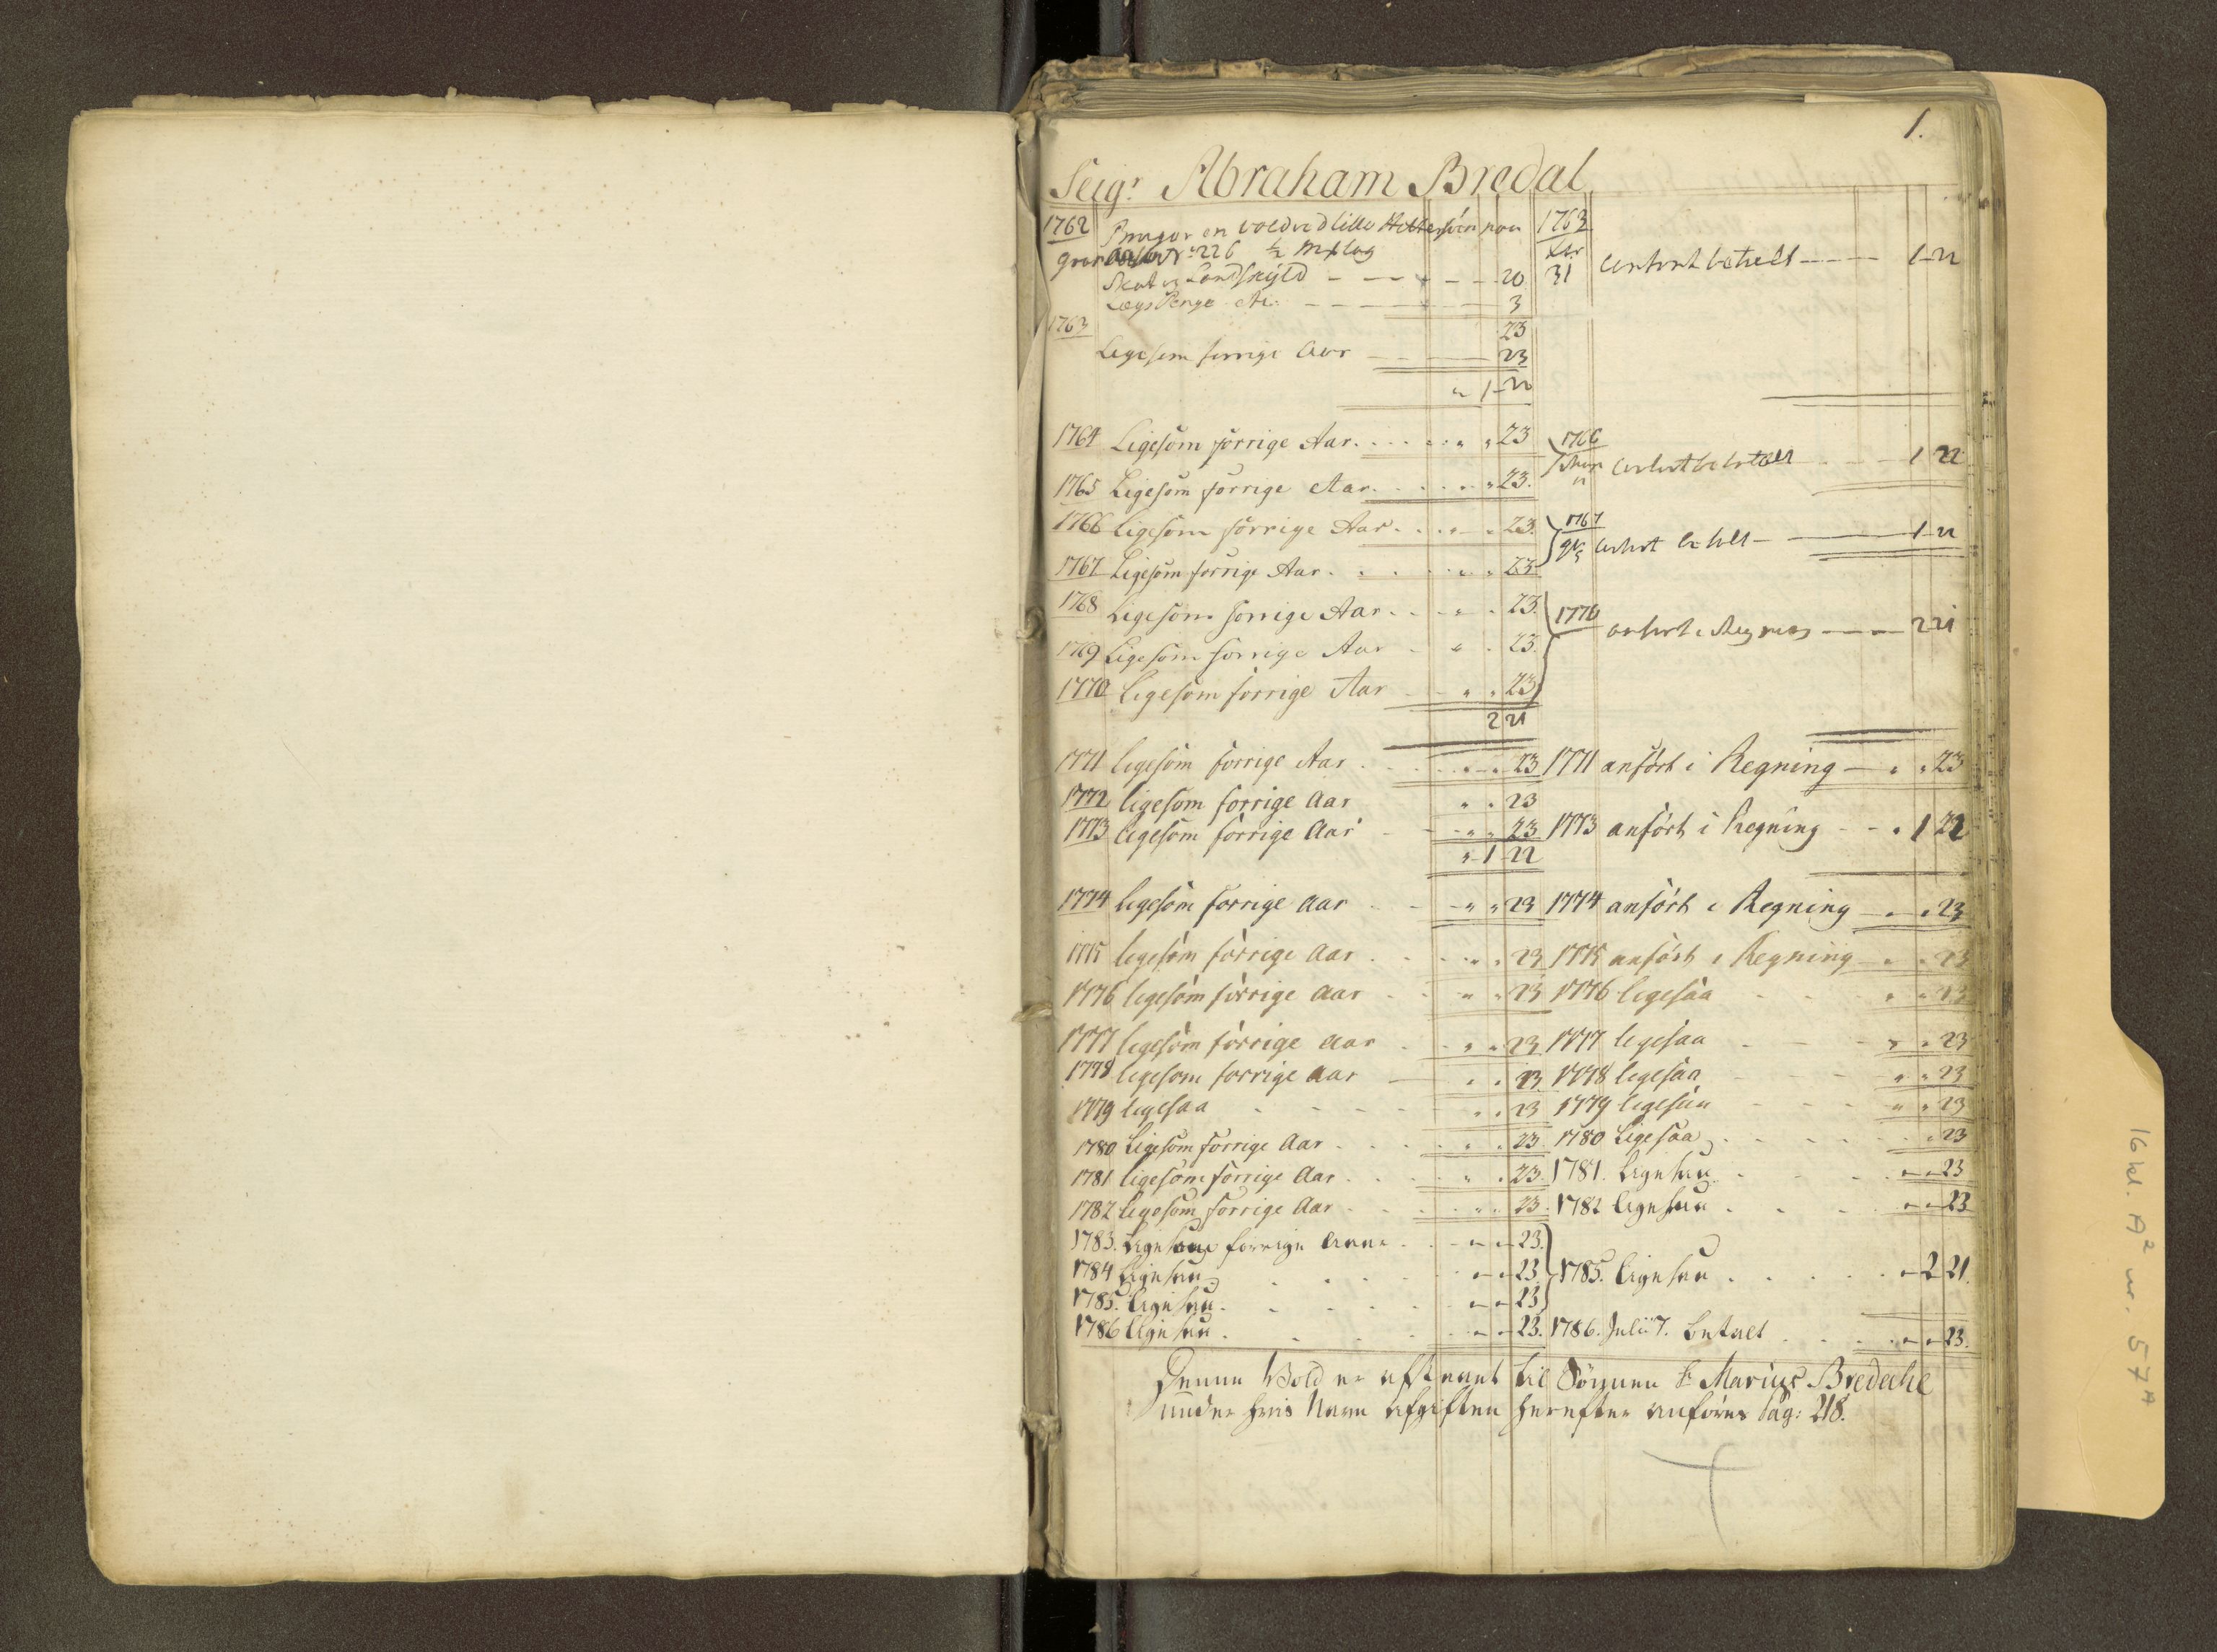 1.
Seigr. Abraham Bredal
1762 Bruger en voldved lille
No 226 ½ Mꝉlag
Skat og Landskyld - - - 20
Penge - - - 3
23
1763
Ligesom forrige Aar - 23
" 1 - 22
1763
31 betalt - - - 1 - 22
1764 Ligesom forrige Aar . . . " " 23
1765 Ligesom forrige Aar . . . " " 23.
1766 betalt - - 1 22
1766 Ligesom forrige Aar . . . " " 23.
1767 Ligesom forrige Aar . . . " " 23
1767 betalt - - 1 22
1768 Ligesom forrige Aar . . . " . 23.
1769 Ligesom forrige Aar - " . 23.
1770 Ligesom forrige Aar - " " 23
2 21
1770 anført i Regning - - 2 21
1771 ligesom forrige Aar . . " " 23 1771 anført i Regning - " " 23
1772 ligesom forrige Aar " " 23
1773 ligesom forrige Aar - " " 23 1773 anført i Regning - - " 1 22
" 1 22
1774 ligesom forrige Aar - - " " 23 1774 anført i Regning - " " 23
1775 ligesom forrige Aar . . " " 23 1775 anført i Regning " " 23
1776 ligesom forrige Aar . . " " 23 1776 ligesaa - - " " 23
1777 ligesom forrige Aar . - " " 23 1777 ligesaa - - - " " 23
1778 ligesom forrige Aar - " " 23 1778 ligesaa - - - " " 23
1779 ligesaa - - - - - " " 23 1779 ligesaa - - - " " 23
1780 Ligesom forrige Aar . . . " " 23. 1780 Ligesaa . . . . " 23
1781 ligesom forrige Aar . . . " " 23. 1781. Ligesaa . . . " " 23
1782 ligesom forrige Aar . . . " " 23. 1782 ligesaa . . . " " 23
1783. Ligesom forrige Aar . . " " 23.
1784 Ligesaa . . . . " " 23. 1785. Ligesaa . . . . " 2 21.
1785. Ligesaa . . . . " " 23
1786 Ligesaa . . . . " " 23. 1786. Julii 7. betalt . . . " " 23.
Denne Vold er afstaaet til Sönnen Sr Marius Bredahl
under hvis Navn Afgiften herefter anføres Pag: 218.
16 kl. A² nr. 57 A